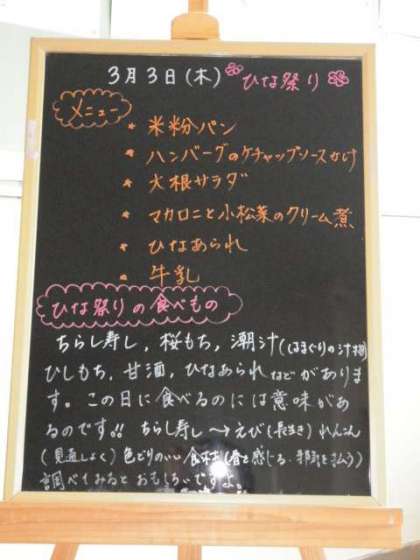 3月3日(木) ひな祭り
メニュー
* 米粉パン
* ハンバーグのケチャップソースかけ
* 大根サラダ
* マカロニと小松菜のクリーム煮
* ひなあられ
* 牛乳
ひな祭りの食べもの
ちらし寿し，桜もち，潮汁(はまぐりの汁物)
ひしもち，甘酒，ひなあられなどがありま
す。この日に食べるのには意味があ
るのです!! ちらし寿し→えび(長生き)れんこん
(見通しよく)色どりのいい食材(春を感じる、邪気を払う)
調べてみるとおもしろいですよ。